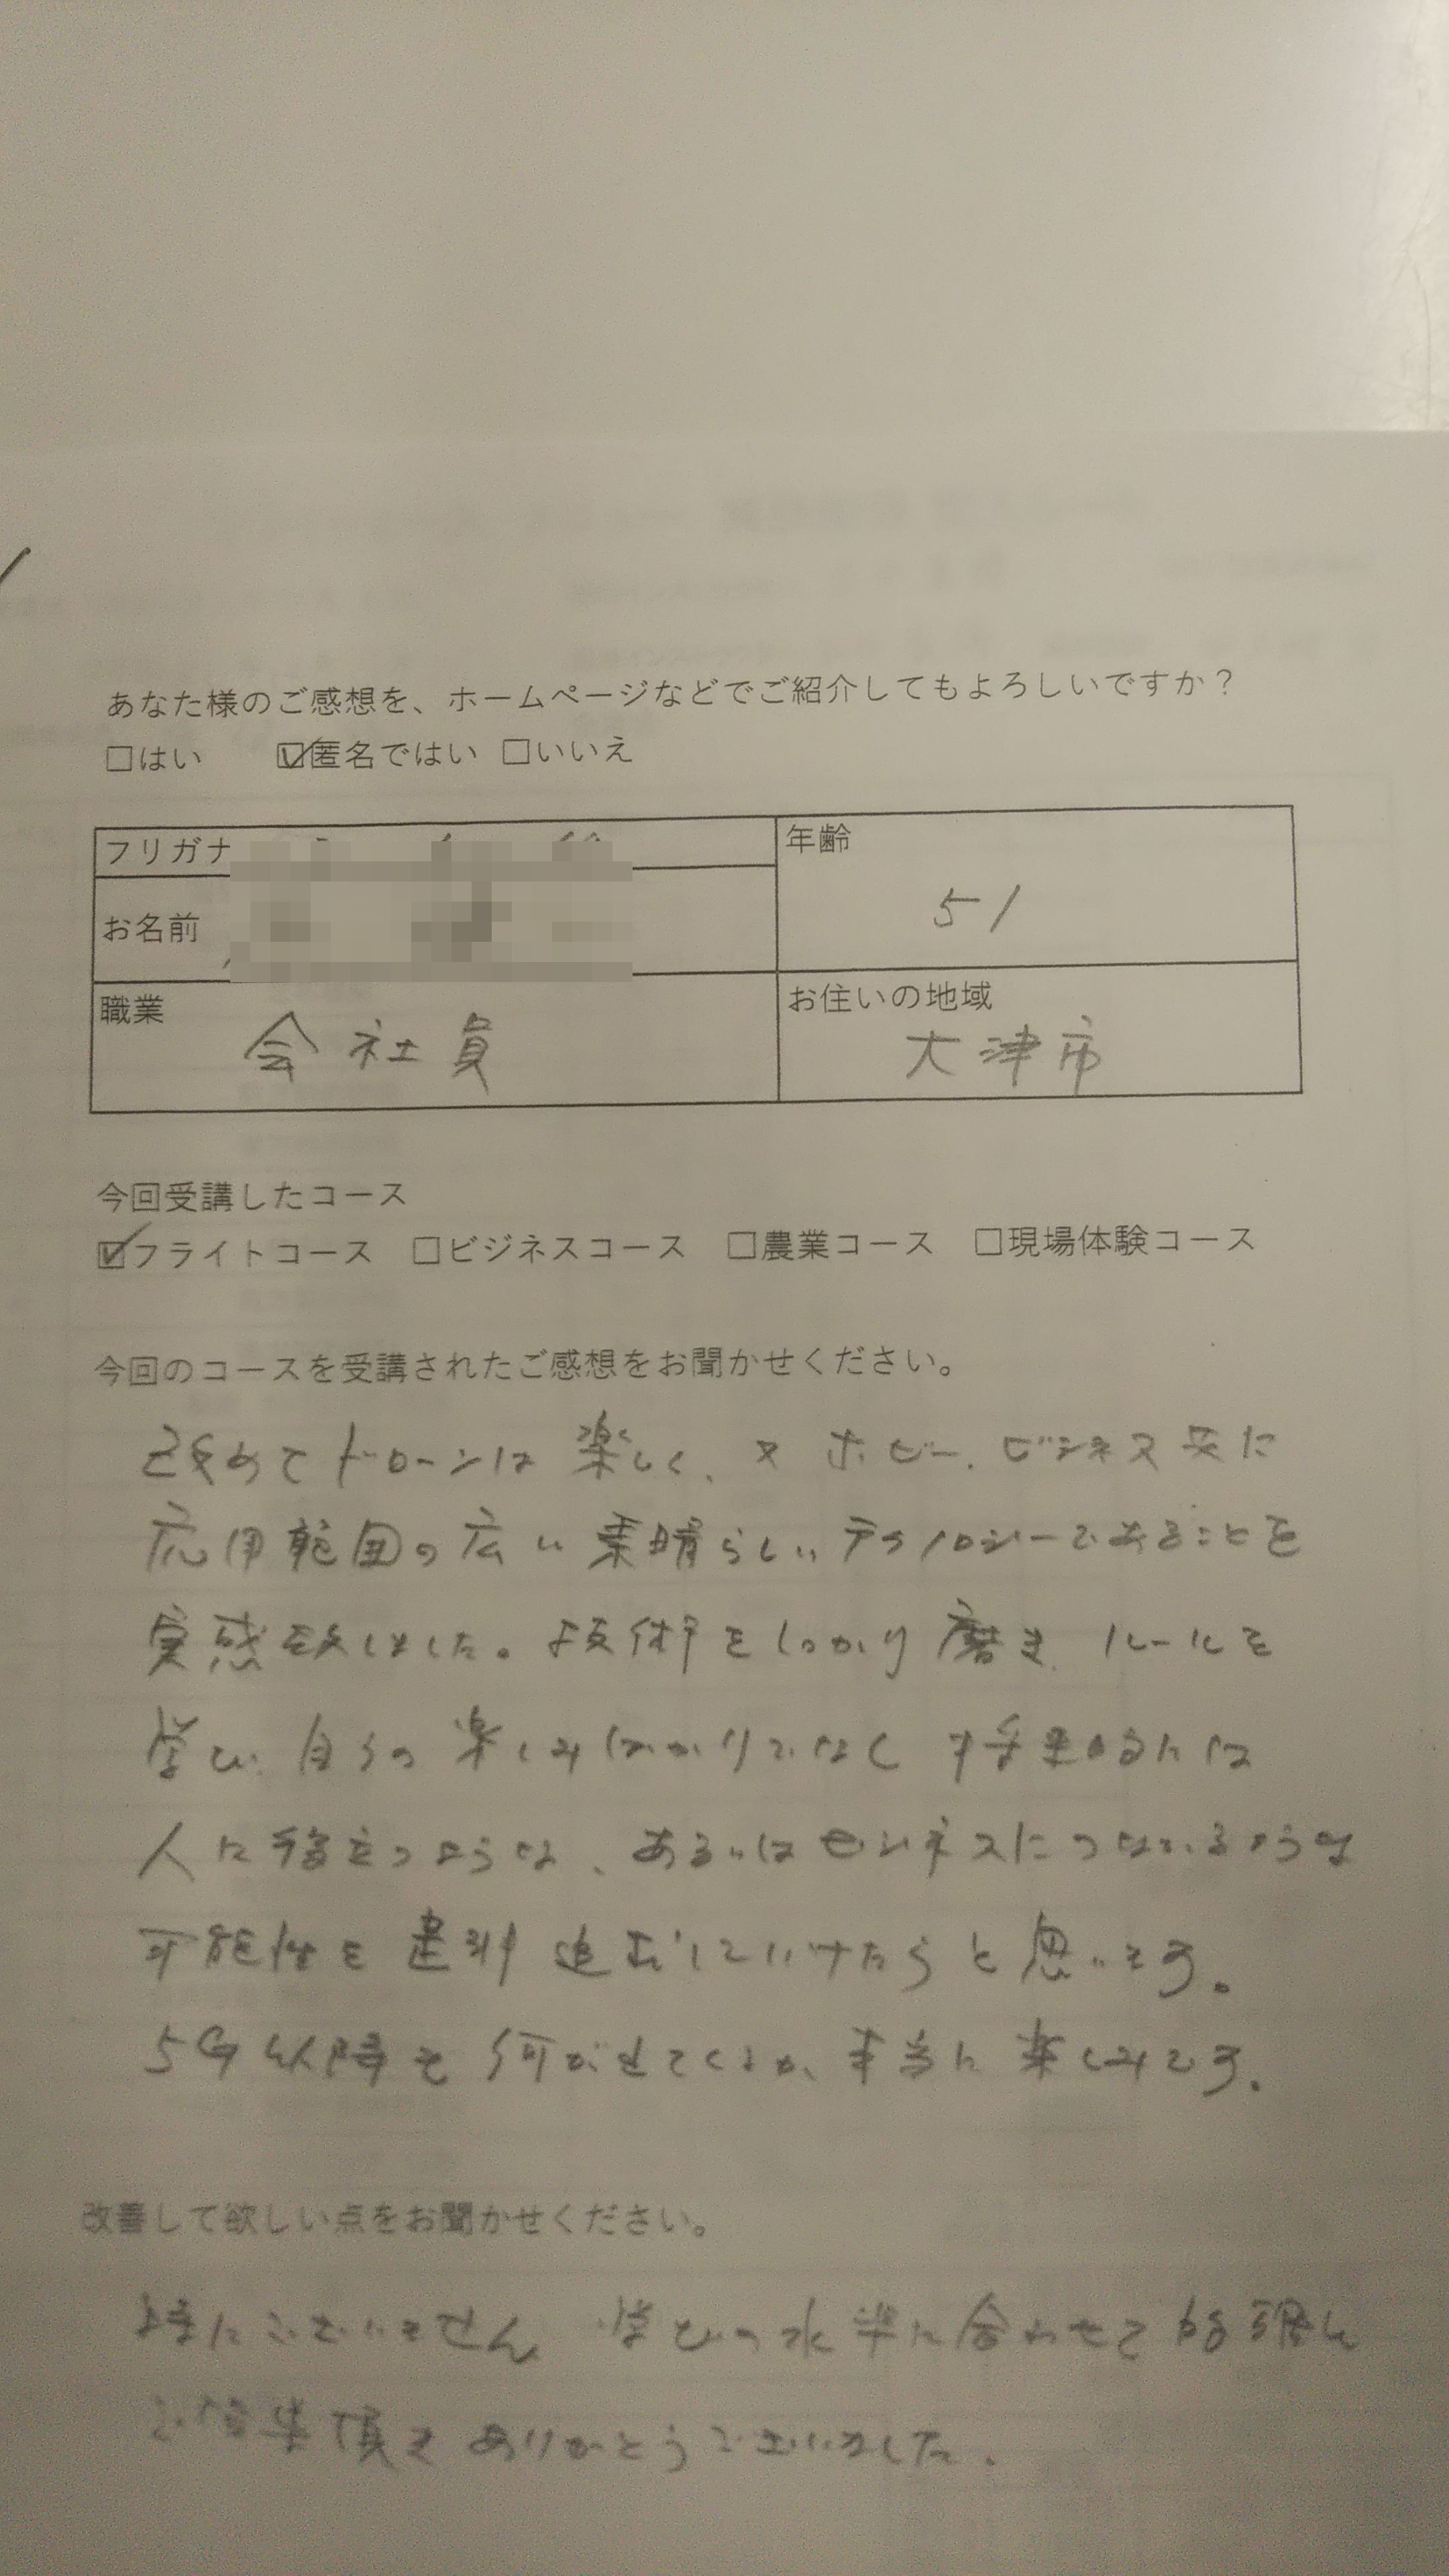 あなた様のご感想を、ホームページなどでご紹介してもよろしいですか？
□はい ☑匿名ではい □いいえ
フリガナ
お名前
年齢
51
職業
会社員
お住いの地域
大津市
今回受講したコース
☑フライトコース □ビジネスコース □農業コース □現場体験コース
今回のコースを受講されたご感想をお聞かせください。
改めてドローンは楽しく、又ホビー、ビジネス共に
応用範囲の広い素晴らしいテクノロジーであることを
実感致しました。技術をしっかり磨き、ルールを
学び、自らの楽しみばかりでなく
人に役立つような、あるいはビジネスにつながるような
可能性を是非追求していけたらと思います。
5G以降も何が出てくるか、本当に楽しみです。
改善して欲しい点をお聞かせください。
特にございません 学びの水準に合わせて
ご 頂きありがとうございました。